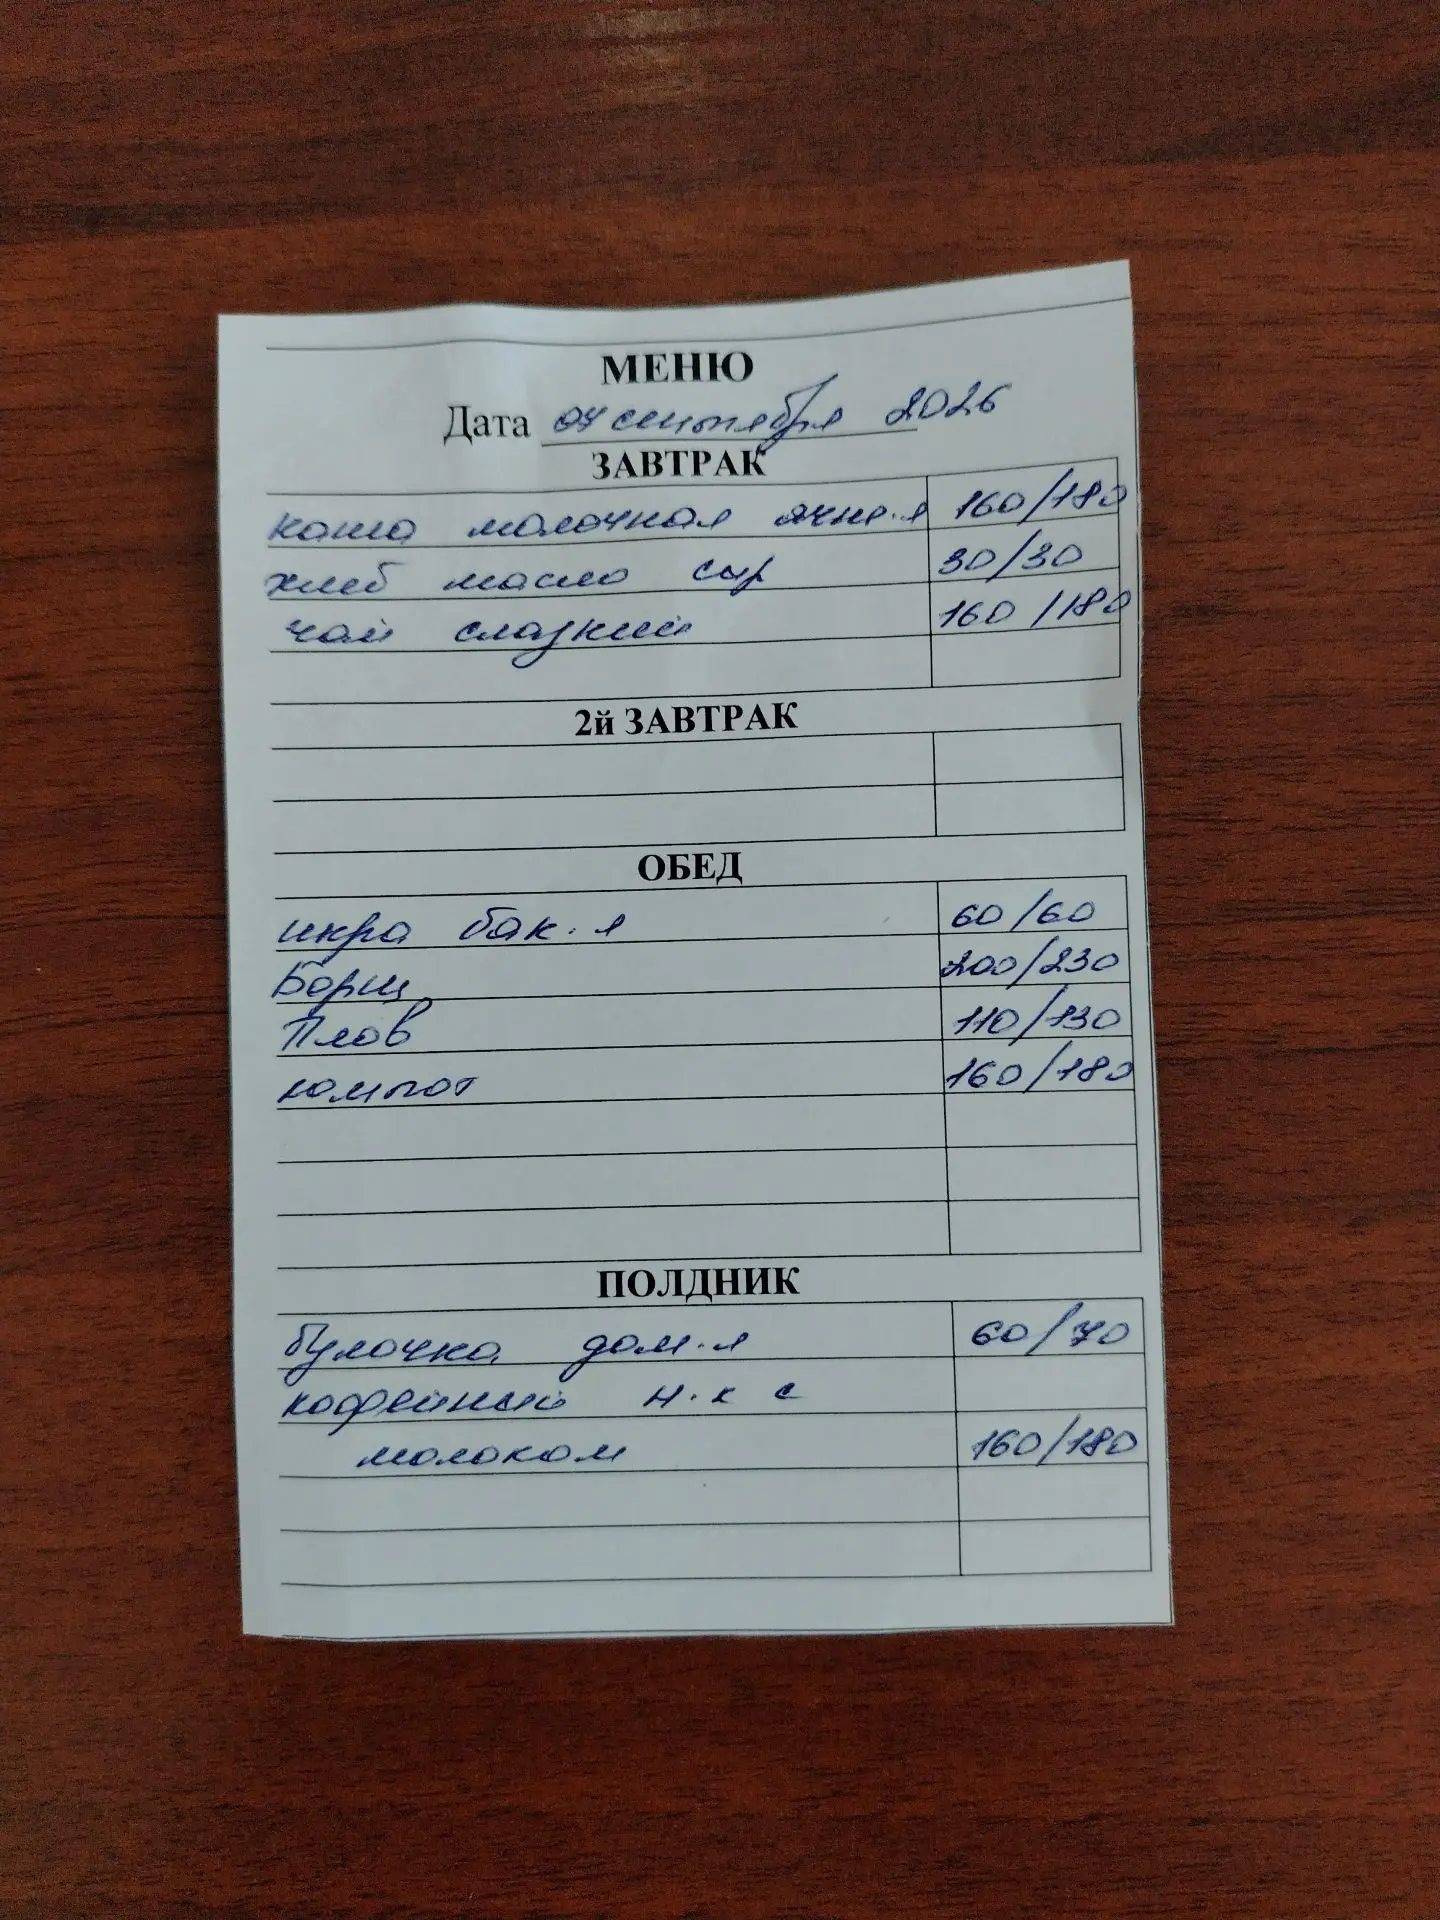 МЕНЮ
Дата 04 сентября 2026
ЗАВТРАК
каша молочная ячне.я 160/180
хлеб масло сыр 30/30
чай сладкий 160/180
2й ЗАВТРАК
ОБЕД
икра бак.я 60/60
Борщ 200/230
Плов 110/130
компот 160/180
ПОЛДНИК
булочка дом.я 60/70
кофейный н.к с
молоком 160/180